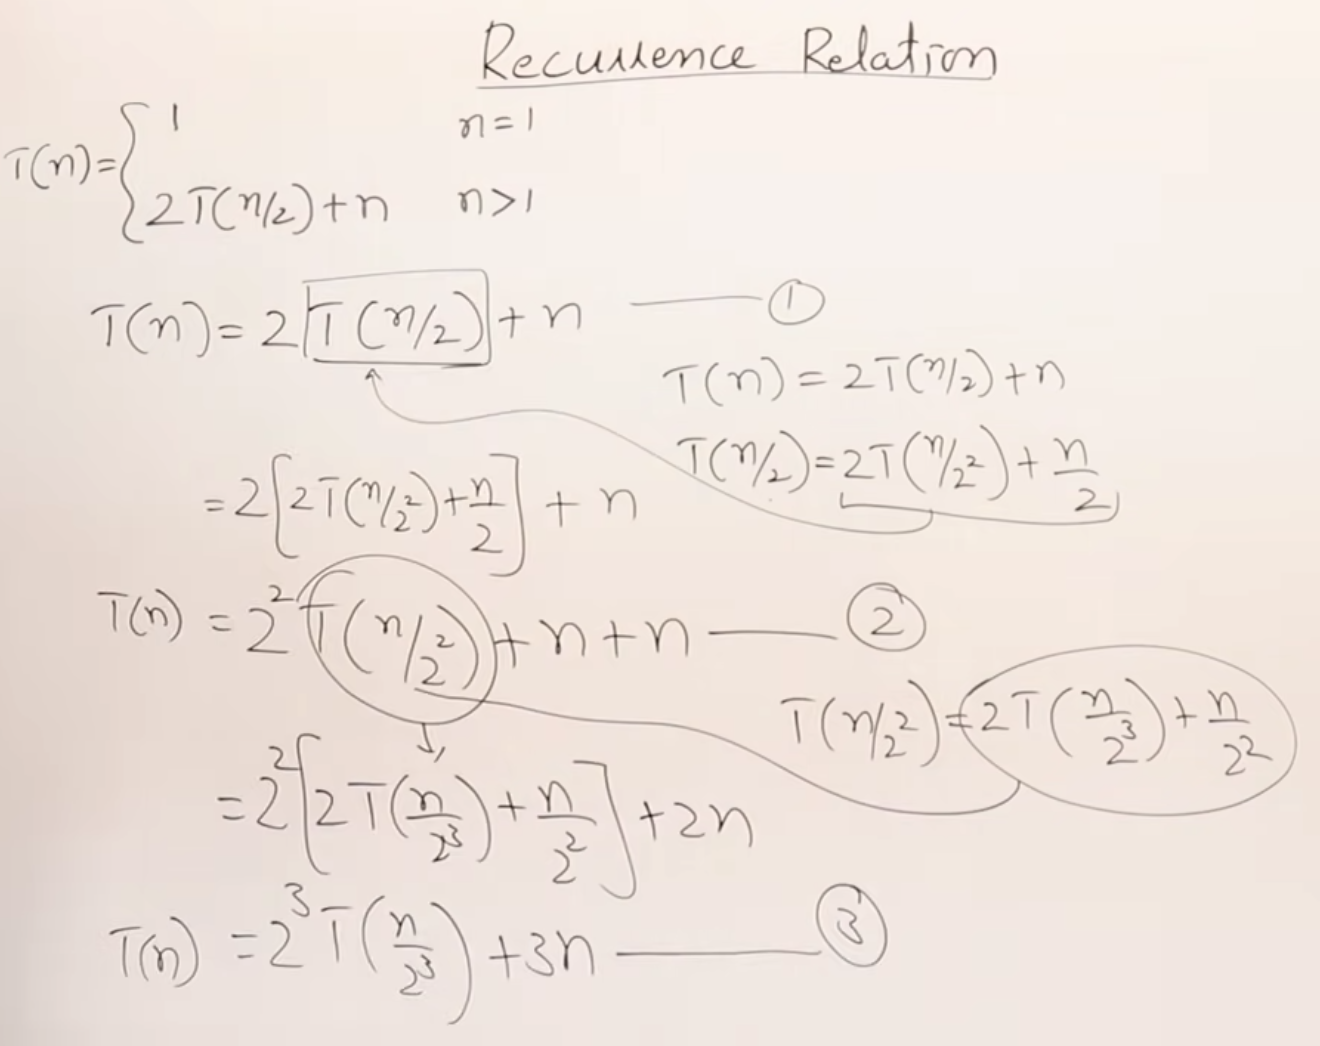 Recurrence Relation
T(n) = { 1 n = 1
2T(n/2) + n n > 1
T(n) = 2 T(n/2) + n —— ①
T(n) = 2T(n/2) + n
T(n/2) = 2T(n/2²) + n/2
= 2[2T(n/2²) + n/2] + n
T(n) = 2² T(n/2²) + n + n —— ②
T(n/2²) = 2T(n/2³) + n/2²
= 2²[2T(n/2³) + n/2²] + 2n
T(n) = 2³ T(n/2³) + 3n —— ③